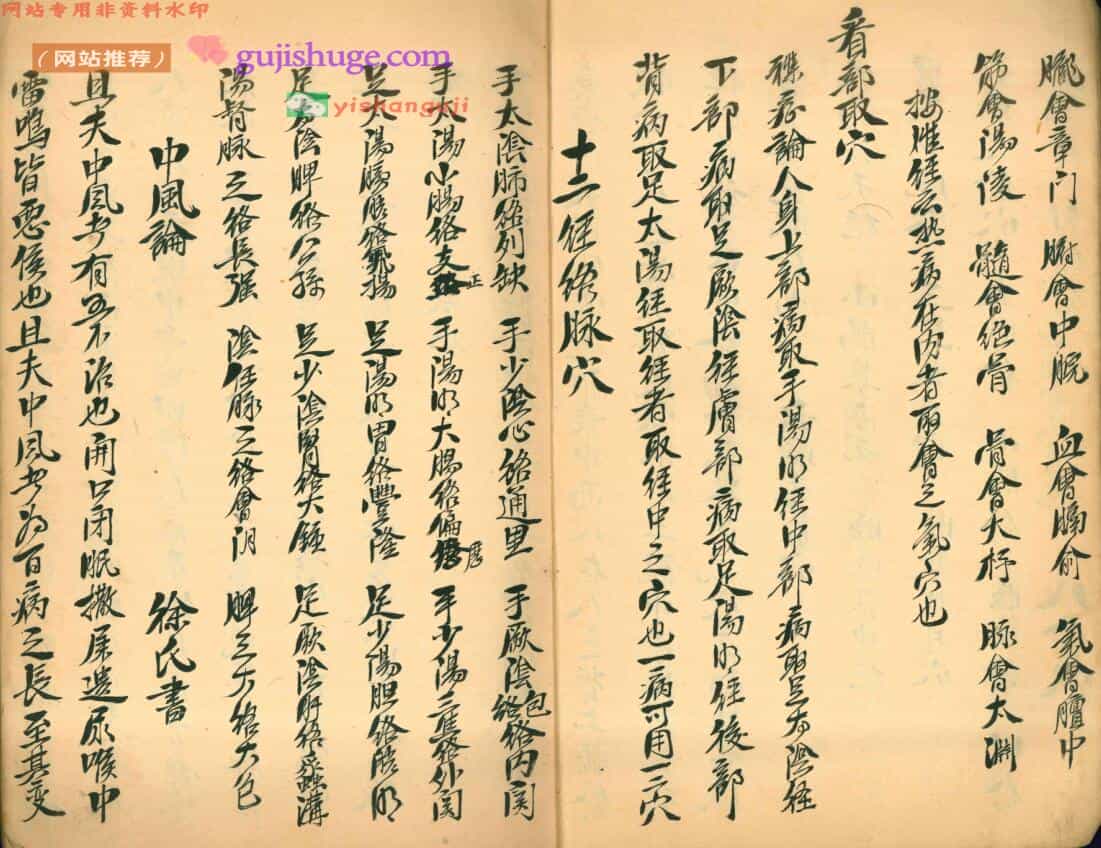 网站专用非资料水印
（网站推荐）
gujishuge.com
yishanguji
臟會章门 腑會中脘 血會膈俞 氣會膻中
筋會陽陵 髓會绝骨 骨會大杼 脉會太渊
按难经云热病在内者取會之氣穴也
看部取穴
雜症論人身上部病取手陽明经中部病取足太陰经
下部病取足厥陰经膚部病取足陽明经後部
背病取足太陽经取经者取经中之穴也一病可用一二穴
十二经络脉穴
手太陰肺络列缺 手少陰心络通里 手厥陰包络络内関
手太陽小腸络支正 手陽明大腸络偏歷 手少陽三焦络外関
足太陽膀胱络飛揚 足陽明胃络豐隆 足少陽胆络光明
足太陰脾络公孫 足少陰腎络大鍾 足厥陰肝络蠡溝
陽督脉之络長强 陰任脉之络會阴 脾之大络大包
中風論 徐氏書
且夫中風者有五不治也開口闭眼撒屎遺尿喉中
雷鸣皆惡候也且夫中風者为百病之長至其变